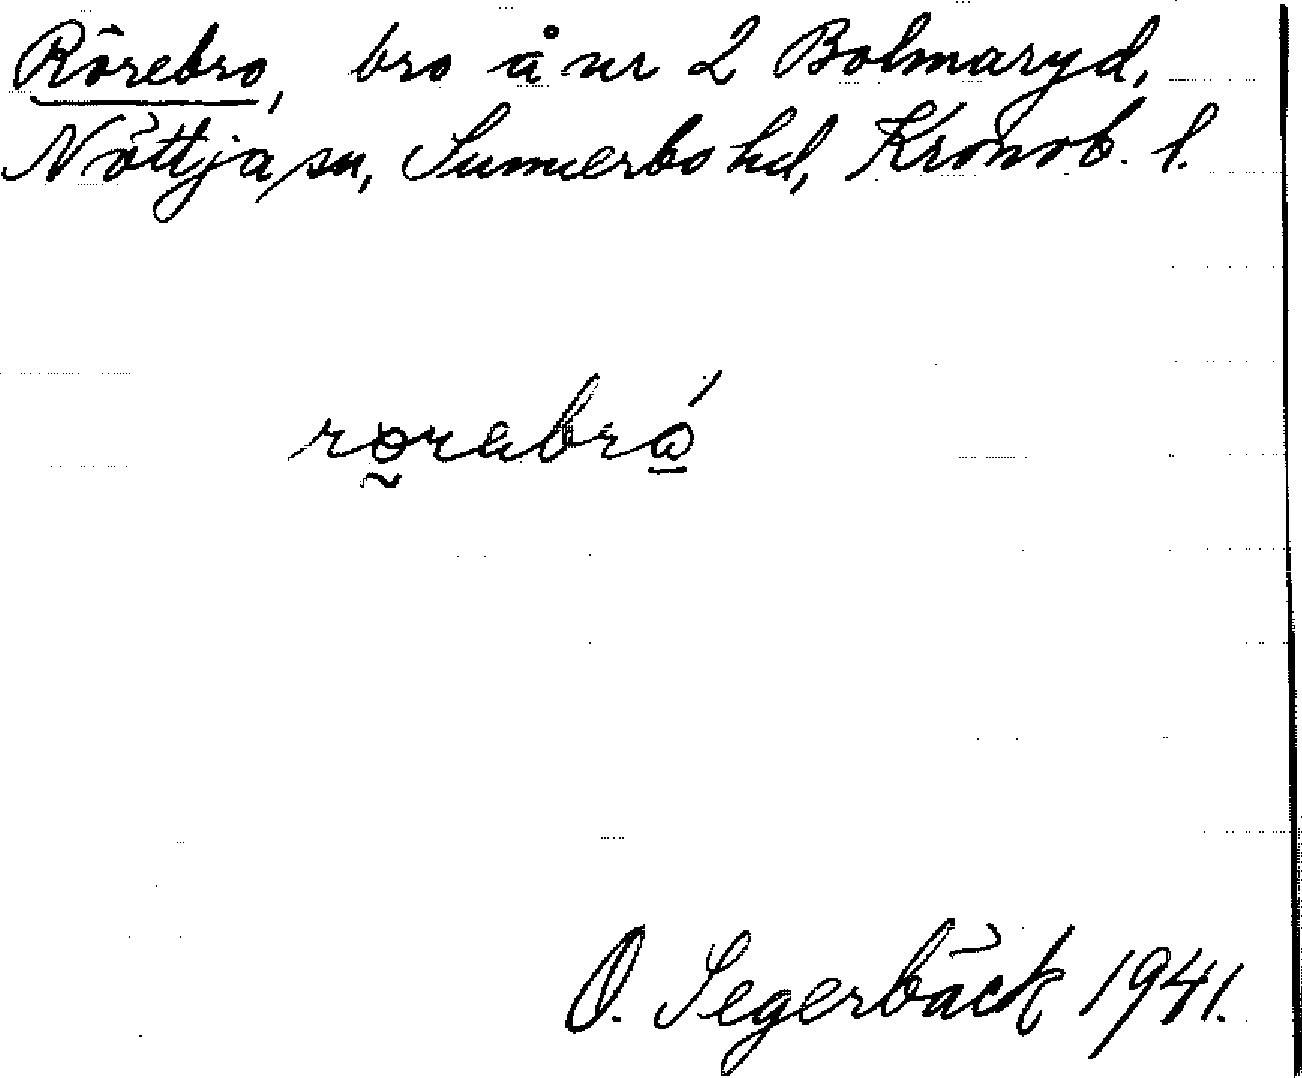 Rörebro, bro å nr 2 Bolmaryd,
Nöttja sn, Sunnerbo hd, Kronob. l.
O. Segerbäck 1941.